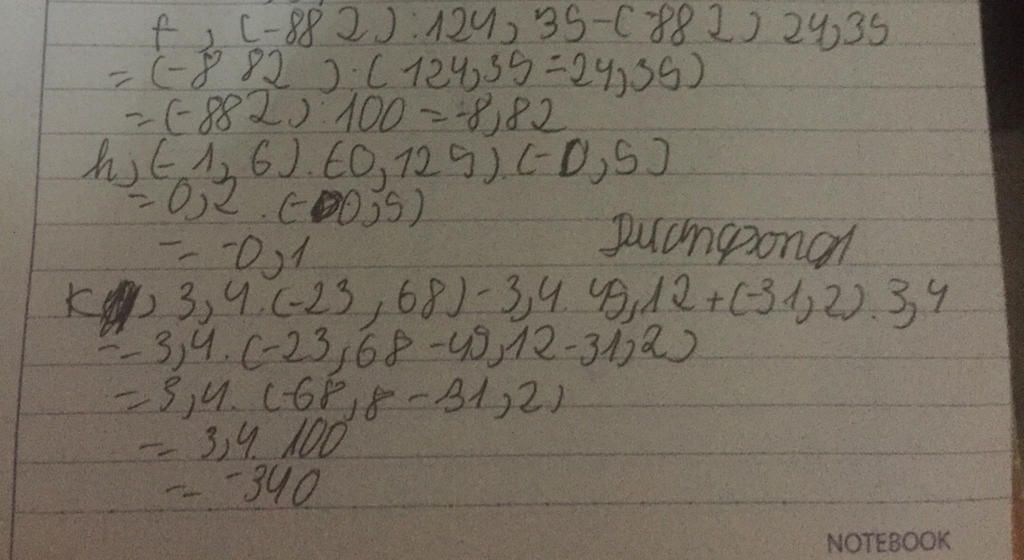 f, (-882) : 124,35 - (-882) 24,35
= (-882) . (124,35 = 24,35)
= (-882) : 100 = -8,82
h, (-1,6) . (-0,125) . (-0,5)
= 0,2 . (-0,5)
= -0,1
K, 3,4 . (-23,68) - 3,4 . 49,12 + (-31,2) . 3,4
= 3,4 . (-23,68 - 49,12 - 31,2)
= 3,4 . (-68,8 - 31,2)
= 3,4 . 100
= -340
NOTEBOOK